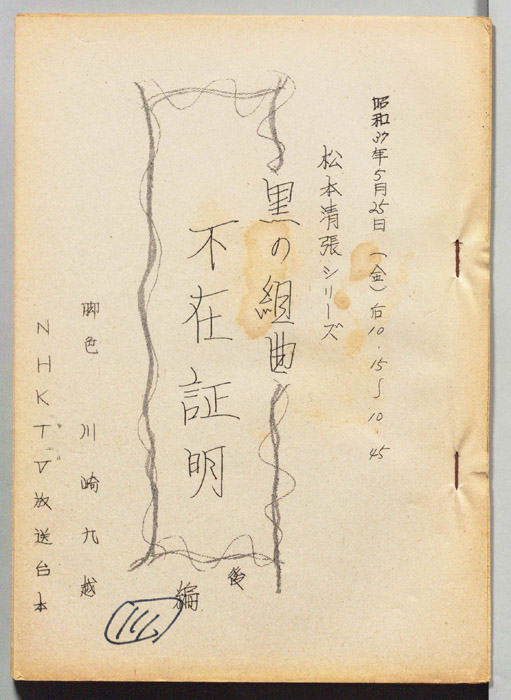 昭和37年5月25日(金)后10.15〜10.45
松本清張シリーズ
黒の組曲
不在証明
後編
脚色 川崎九越
NHKTV放送台本